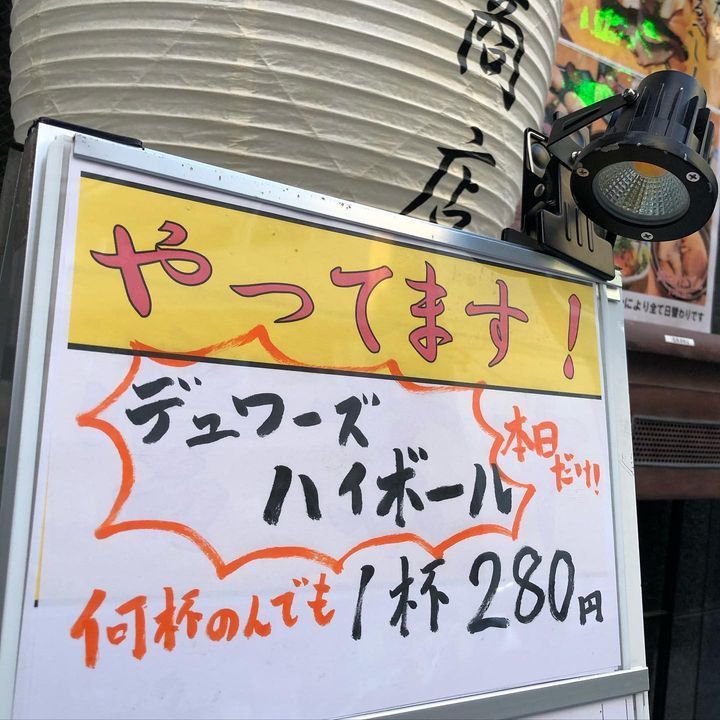 商店
やってます!
デュワーズ
ハイボール
本日
だけ!
何杯のんでも 1杯 280円
により全て日替わりです